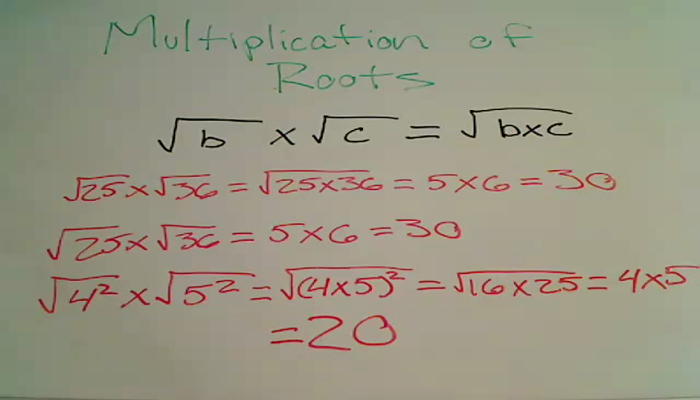 Multiplication of
Roots
√b × √c = √b×c
√25 × √36 = √25×36 = 5×6 = 30
√25 × √36 = 5×6 = 30
√4² × √5² = √(4×5)² = √16×25 = 4×5
= 20